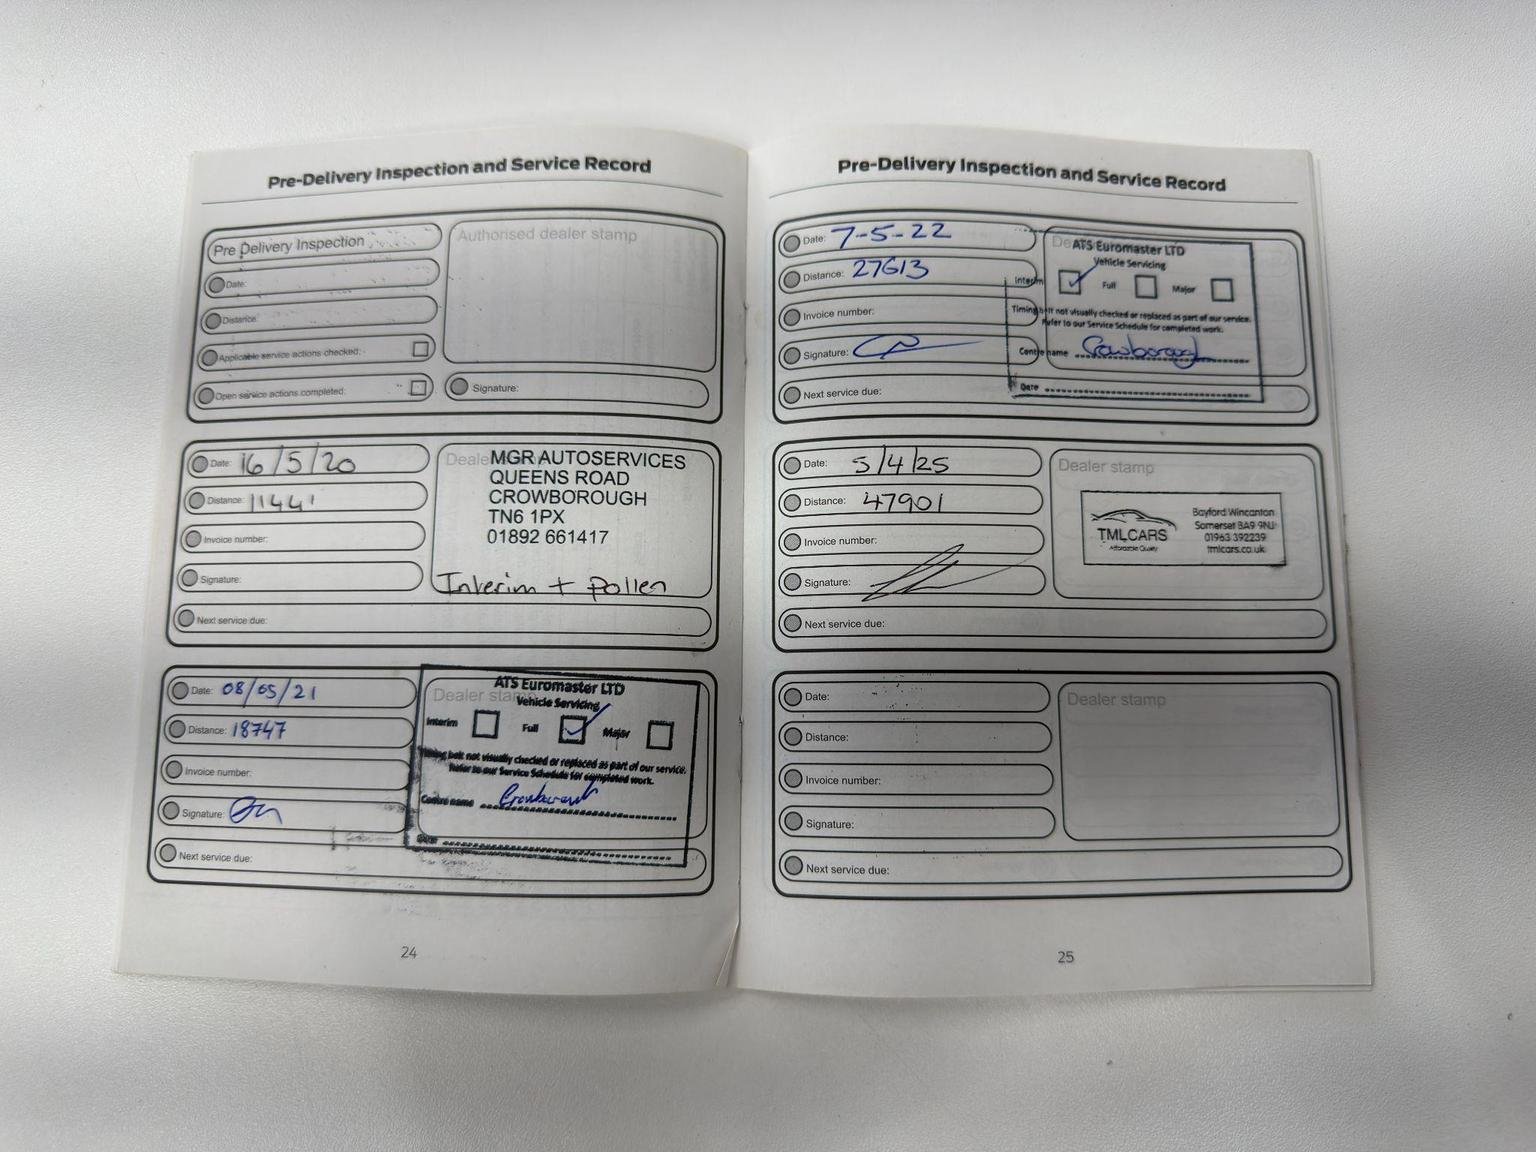 Pre-Delivery Inspection and Service Record
Pre Delivery Inspection
Date:
Distance:
Applicable service actions checked:
Open service actions completed:
Authorised dealer stamp
Signature:
Date: 16/5/20
Distance: 11441
Invoice number:
Signature:
Next service due:
Dealer
MGR AUTOSERVICES
QUEENS ROAD
CROWBOROUGH
TN6 1PX
01892 661417
Interim + pollen
Date: 08/05/21
Distance: 18747
Invoice number:
Signature:
Next service due:
Dealer stamp
ATS Euromaster LTD
Vehicle Servicing
Interim Full Major
Timing belt not visually checked or replaced as part of our service.
Refer to our Service Schedule for completed work.
Centre name Crowborough
Date
24
Pre-Delivery Inspection and Service Record
Date: 7-5-22
Distance: 27613
Invoice number:
Signature:
Next service due:
ATS Euromaster LTD
Vehicle Servicing
Interim Full Major
Timing belt not visually checked or replaced as part of our service.
Refer to our Service Schedule for completed work.
Centre name Crowborough
Date
Date: 5/4/25
Distance: 47901
Invoice number:
Signature:
Next service due:
Dealer stamp
TMLCARS
Affordable Quality
Bayford Wincanton
Somerset BA9 9NJ
01963 392239
tmlcars.co.uk
Date:
Distance:
Invoice number:
Signature:
Next service due:
Dealer stamp
25